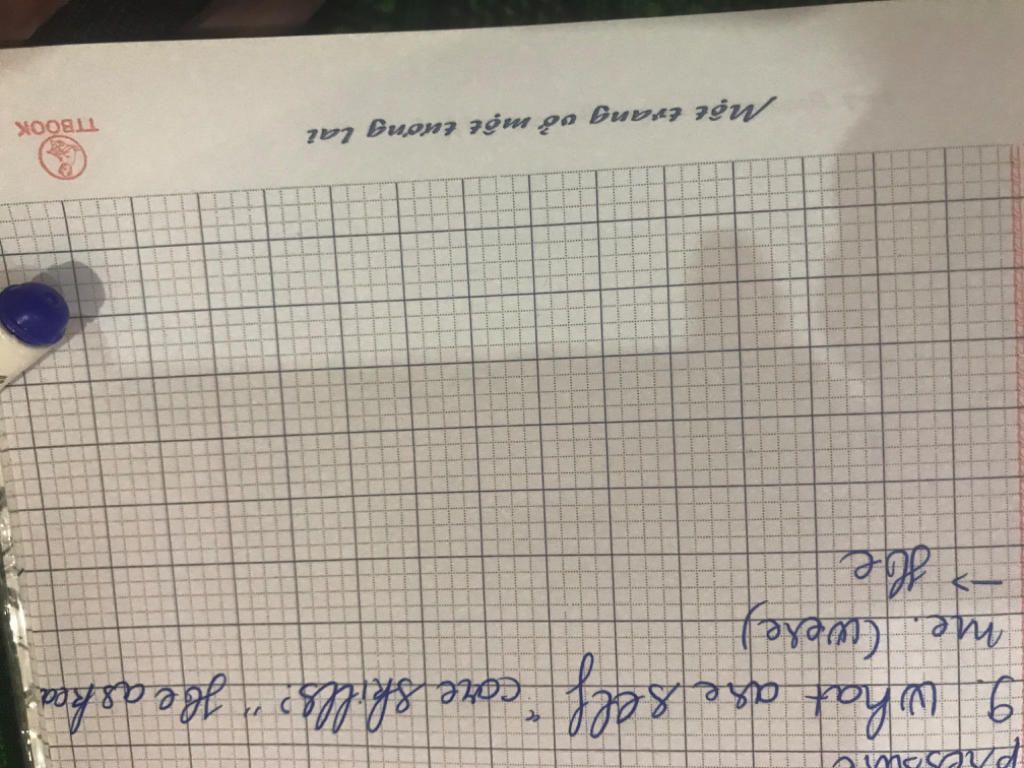 pressure
9. What are self - care skills?" He asked
me. (were)
→ He
Một trang vở một tương lai
TTBOOK